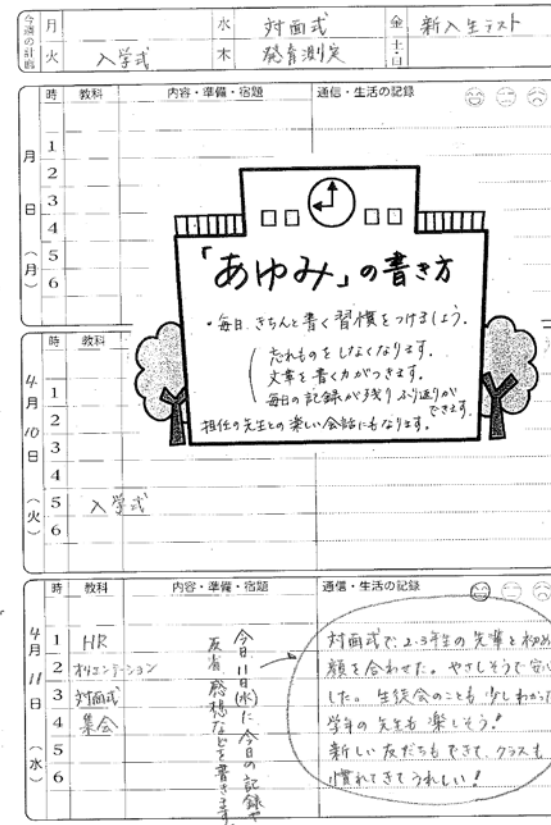 今週の計画 月 水 対面式 金 新入生テスト
火 入学式 木 発育測定 土・日
時 教科 内容・準備・宿題 通信・生活の記録
月
日
(月)
1
2
3
4
5
6
「あゆみ」の書き方
・毎日、きちんと書く習慣をつけましょう。
忘れものをしなくなります。
文章を書く力がつきます。
毎日の記録が残りふり返りが
できます。
担任の先生との楽しい会話にもなります。
時 教科
4月10日(火)
1
2
3
4
5 入学式
6
時 教科 内容・準備・宿題 通信・生活の記録
4月11日(水)
1 HR
2 オリエンテーション
3 対面式
4 集会
5
6
今日、11日(水)に今日の記録や
反省、感想などを書きます。
対面式で、2・3年生の先輩と初め
顔を合わせた。やさしそうで安心
した。生徒会のことも少しわかって
学年の先生も楽しそう!
新しい友だちもできて、クラスも
慣れてきてうれしい!